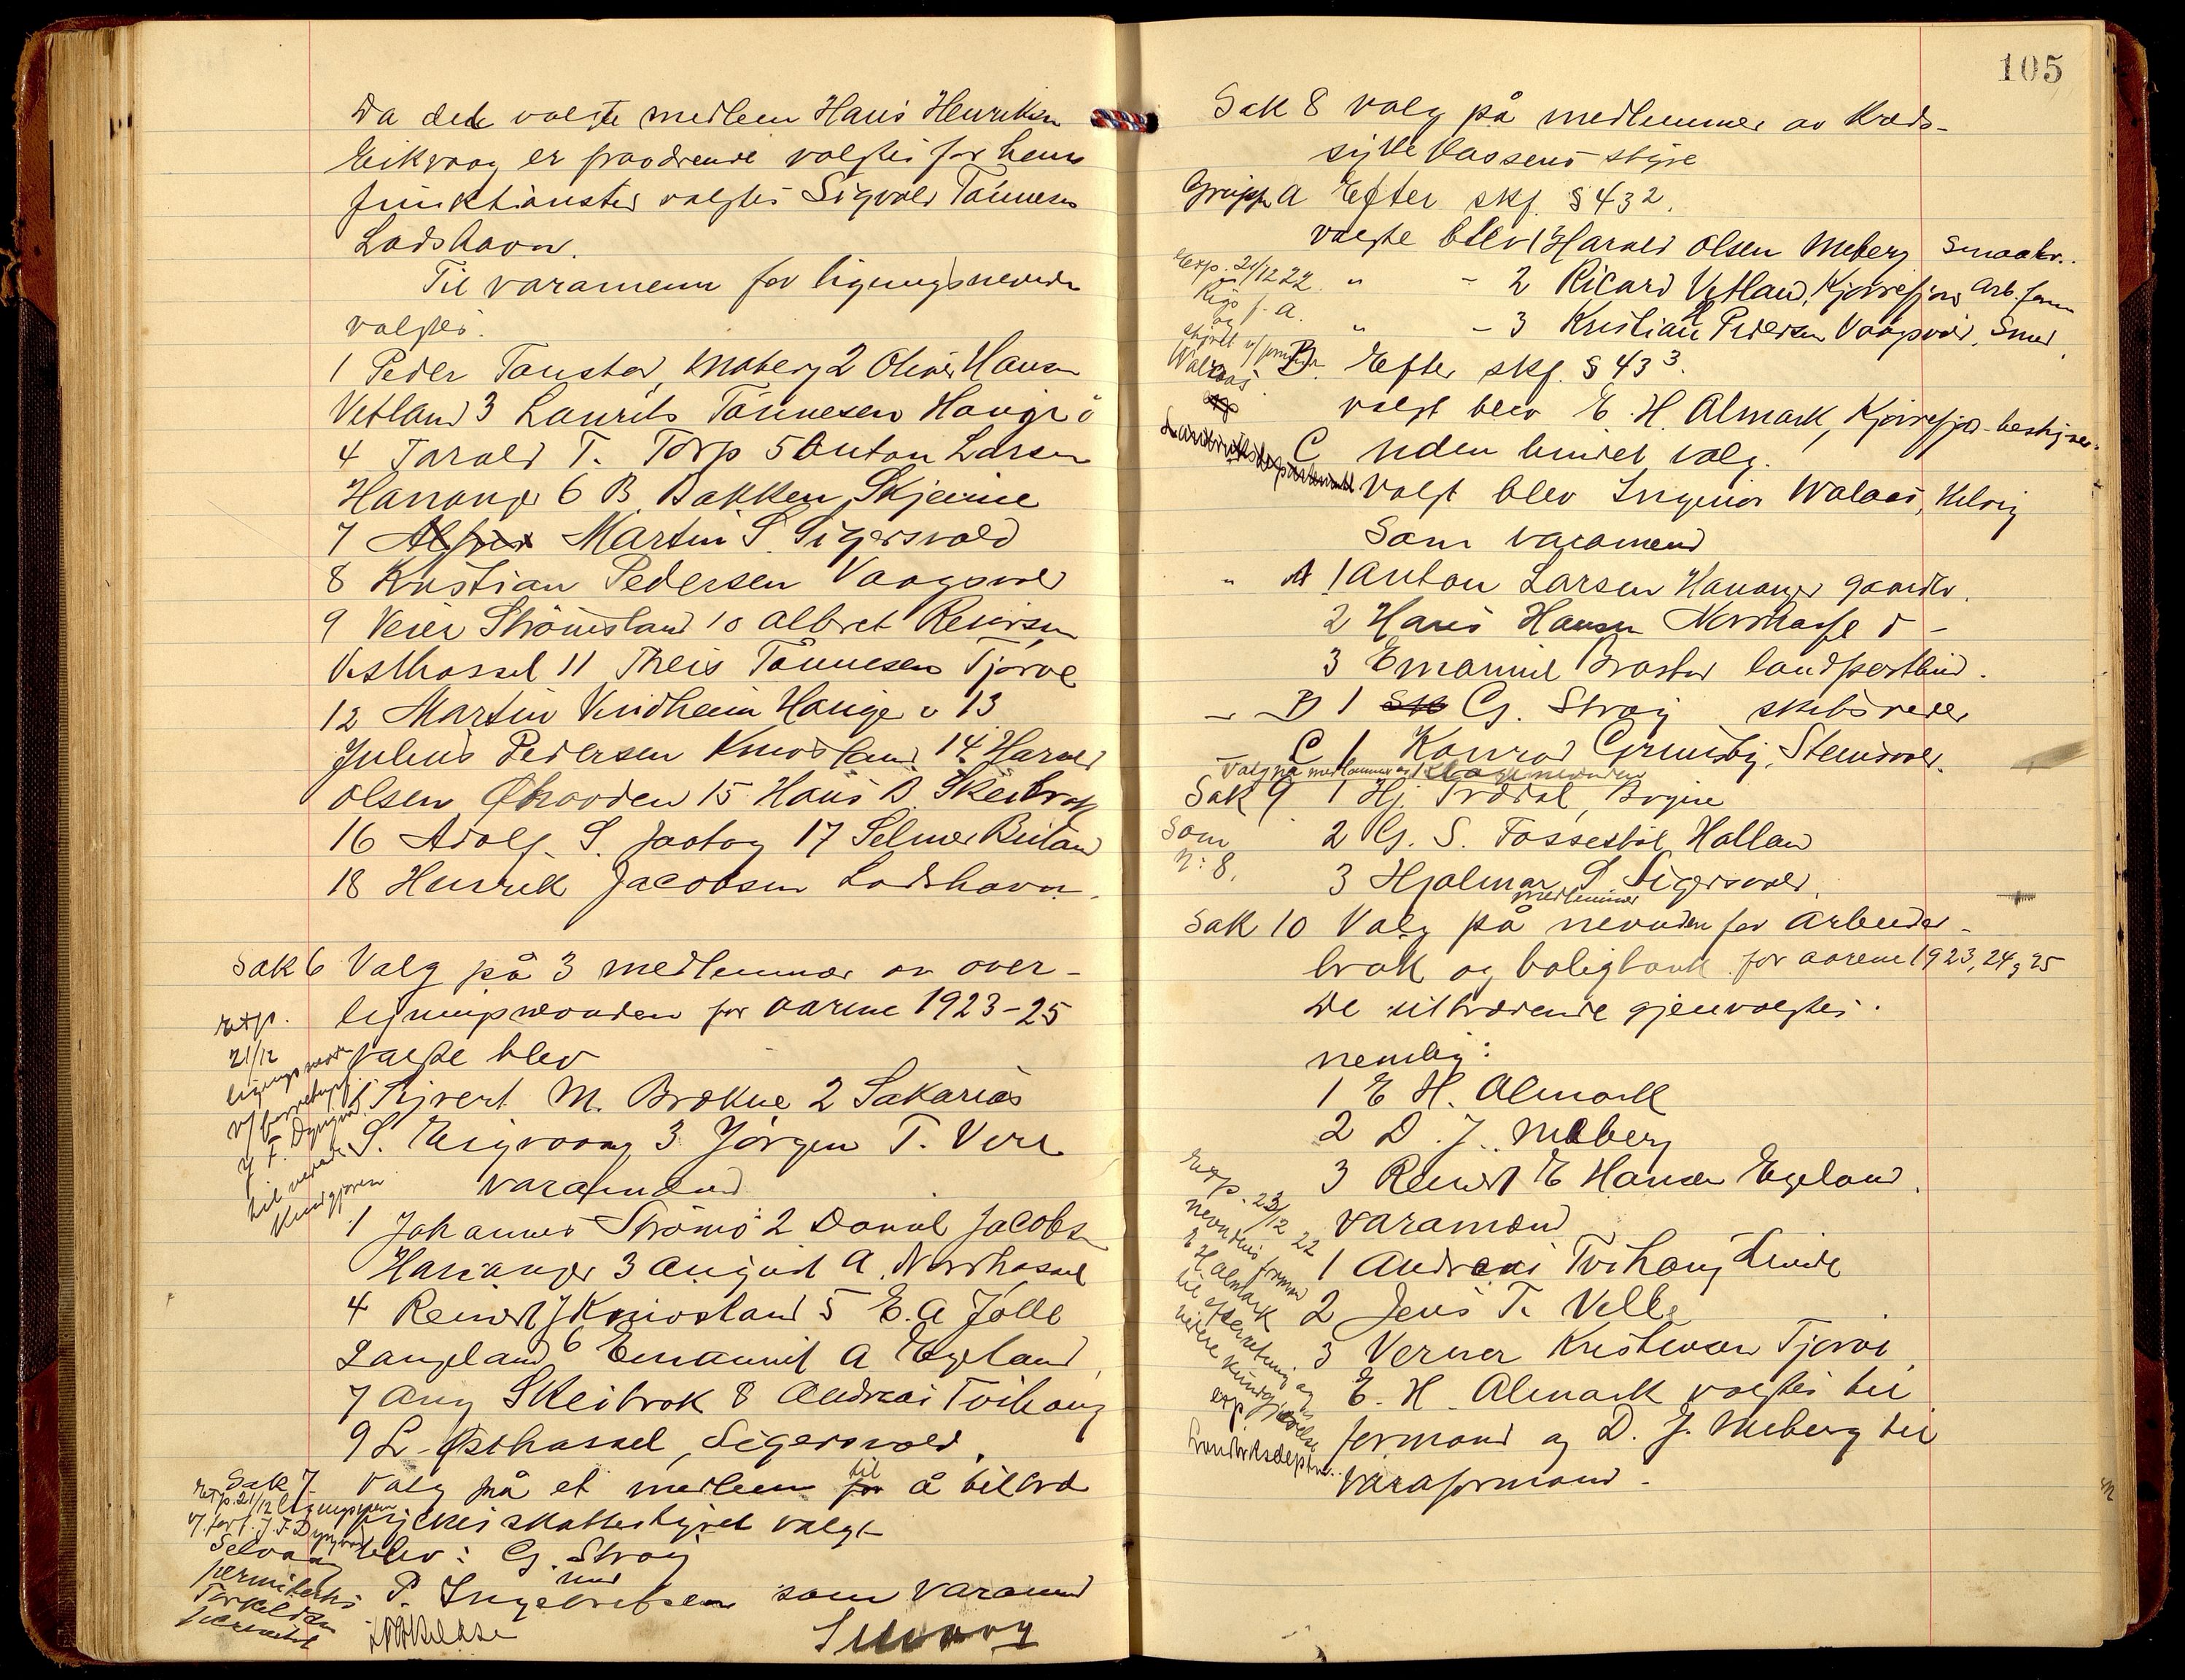 Da det valgte medlem Hans Henriksen
Eikvaag er fraadrende valgtes for hans
funktionstid valgtes Sigvald Tønnesen
Ladshavn.
Til varamenn for ligningsnevnden
valgtes.
1 Peder Tønster Meberg 2 Oliver Hansen
Vetland 3 Laurits Tønnesen Haugø
4 Tarald T. Torp 5 Anton Larsen
Hananger 6 B. Bakken Skjeine
7 Martin S. Sigersvold
8 Kristian Pedersen Vaagsvol
9 Veier Strømsland 10 Albret Reiersen
Vesthassel 11 Theis Tønnesen Tjørve
12 Martin Vindheim Hauge 13
Julius Pedersen Knivsland 14 Harald
Olsen 15 Hans B. Skeibrok
16 Adolf S. Jaatog 17 Selmer Briland
18 Henrik Jacobsen Ladshavn.
Sak 6 Valg på 3 medlemmer av over-
ligningsnevnden for aarene 1923-25
Exp. 21/12
valgte blev
1 Sivert M. Brekne 2 Sakarias
S. Eigvaag 3 Jørgen T. Vere
varamænd
1 Johannes Strømø 2 Daniel Jacobsen
Hananger 3 August A. Nordhassel
4 Reinert J Knivsland 5 E. A Jølle
Langeland 6 Emanuel A Egeland
7 Aug Skeibrok 8 Andreas Tvihaug
9 L. Østhassel, Sigersvold.
Sak 7 Valg på et medlem til å tiltræ
Exp. 21/12
fylkesskattestyret valgt
blev: G. Stray
P. Ingebretsen som varamand
105
Sak 8 valg på medlemmer av Kreds-
sykekassens styre
Gruppe A Efter skf. § 43 2.
valgte blev 1 Harald Olsen Meberg Smaabr.
" - 2 Ricard Vetland, Kjørrefjord Arb.form
" - 3 Kristian Pedersen Vaagsvol, Smed
Exp. 21/12 22
B. Efter skf. § 43 3.
valgt blev E. H. Almark, Kjørrefjord bestyrer.
C uden bundet valg.
valgt blev Ingeniør Walaas, Helvig
Som varamend
" A 1 Anton Larsen Hananger gaardbr.
2 Hans Hansen Nordhassel d -
3 Emanuel Brastad landpostbud.
- B 1 G. Stray skibsreder
- C 1 Konrad Grimsby, Steinsvol.
Valg på medlemmer av klagenevnden
Sak 9 1 Hj. Trædal, Brgne
Som
N: 8.
2 G. S. Fossestøl Halland
3 Hjalmar S Sigersvold.
medlemmer
Sak 10 Valg på nevnden for arbeider-
bruk og boligbank for aarene 1923, 24 & 25
De uttrædende gjenvalgtes.
nemlig:
1 E H. Almark
2 D. J. Meberg
3 Reinert E Hansen Egeland.
Exp. 23/12 22
nevndens formand
E H Almark
til efterretning og
videre kundgjørelse
exp.
Landbruksdeptm..
varamænd
1 Andreas Tvihaug Lunde
2 Jens T. Velle
3 Verner Kristensen Tjørve
E. H. Almark valgtes til
formand og D. J. Meberg til
varaformand.